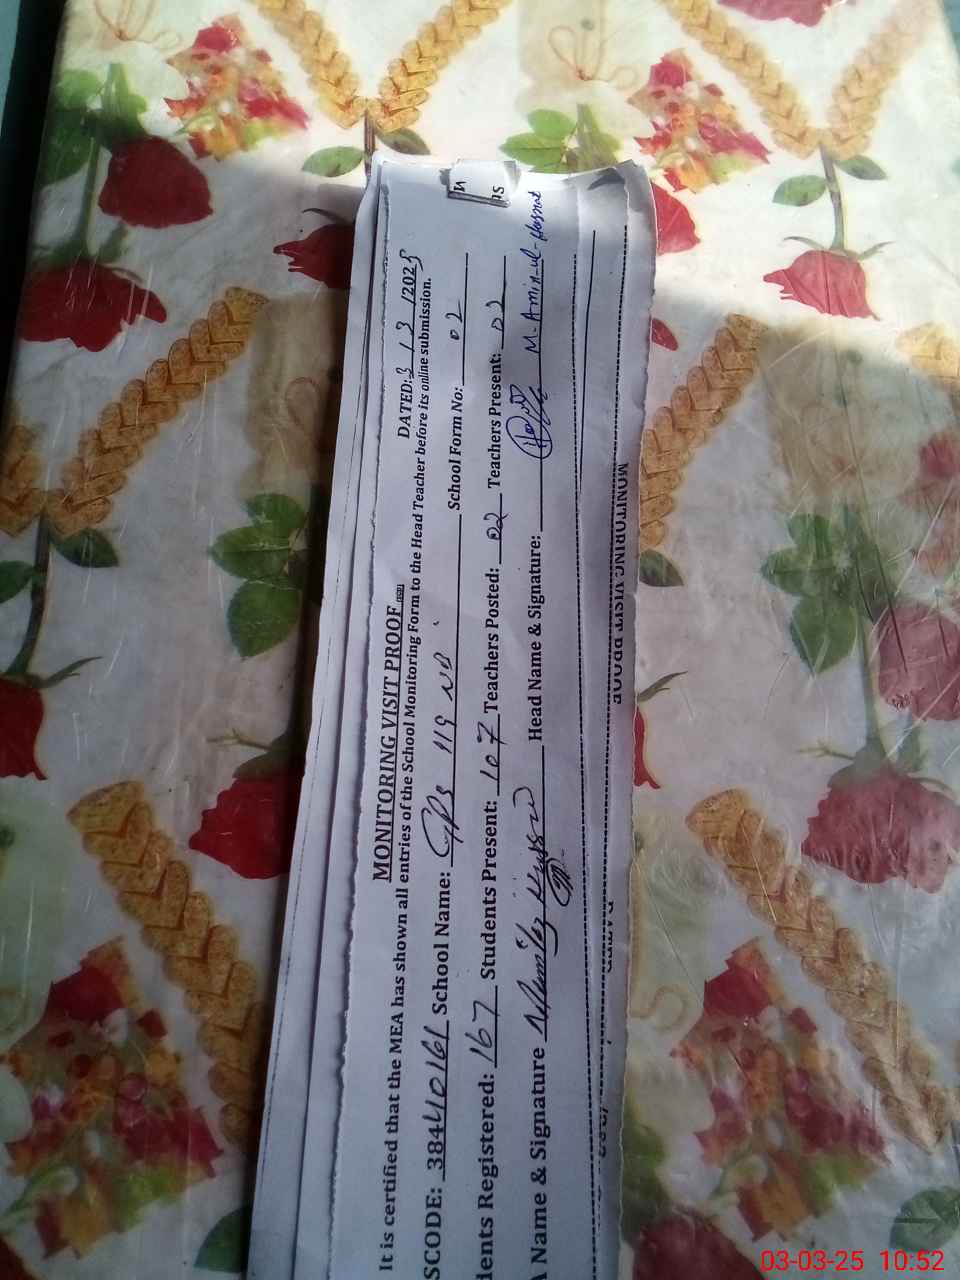 MONITORING VISIT PROOF
DATED: 3 / 3 /2025
It is certified that the MEA has shown all entries of the School Monitoring Form to the Head Teacher before its online submission.
SCODE: 38440161 School Name: GPS 119 NB School Form No: 02
dents Registered: 167 Students Present: 107 Teachers Posted: 02 Teachers Present: 02
A Name & Signature Head Name & Signature: M. Amin-ul-Hasnat
MONITORING VISIT PROOF
DATED
03-03-25 10:52